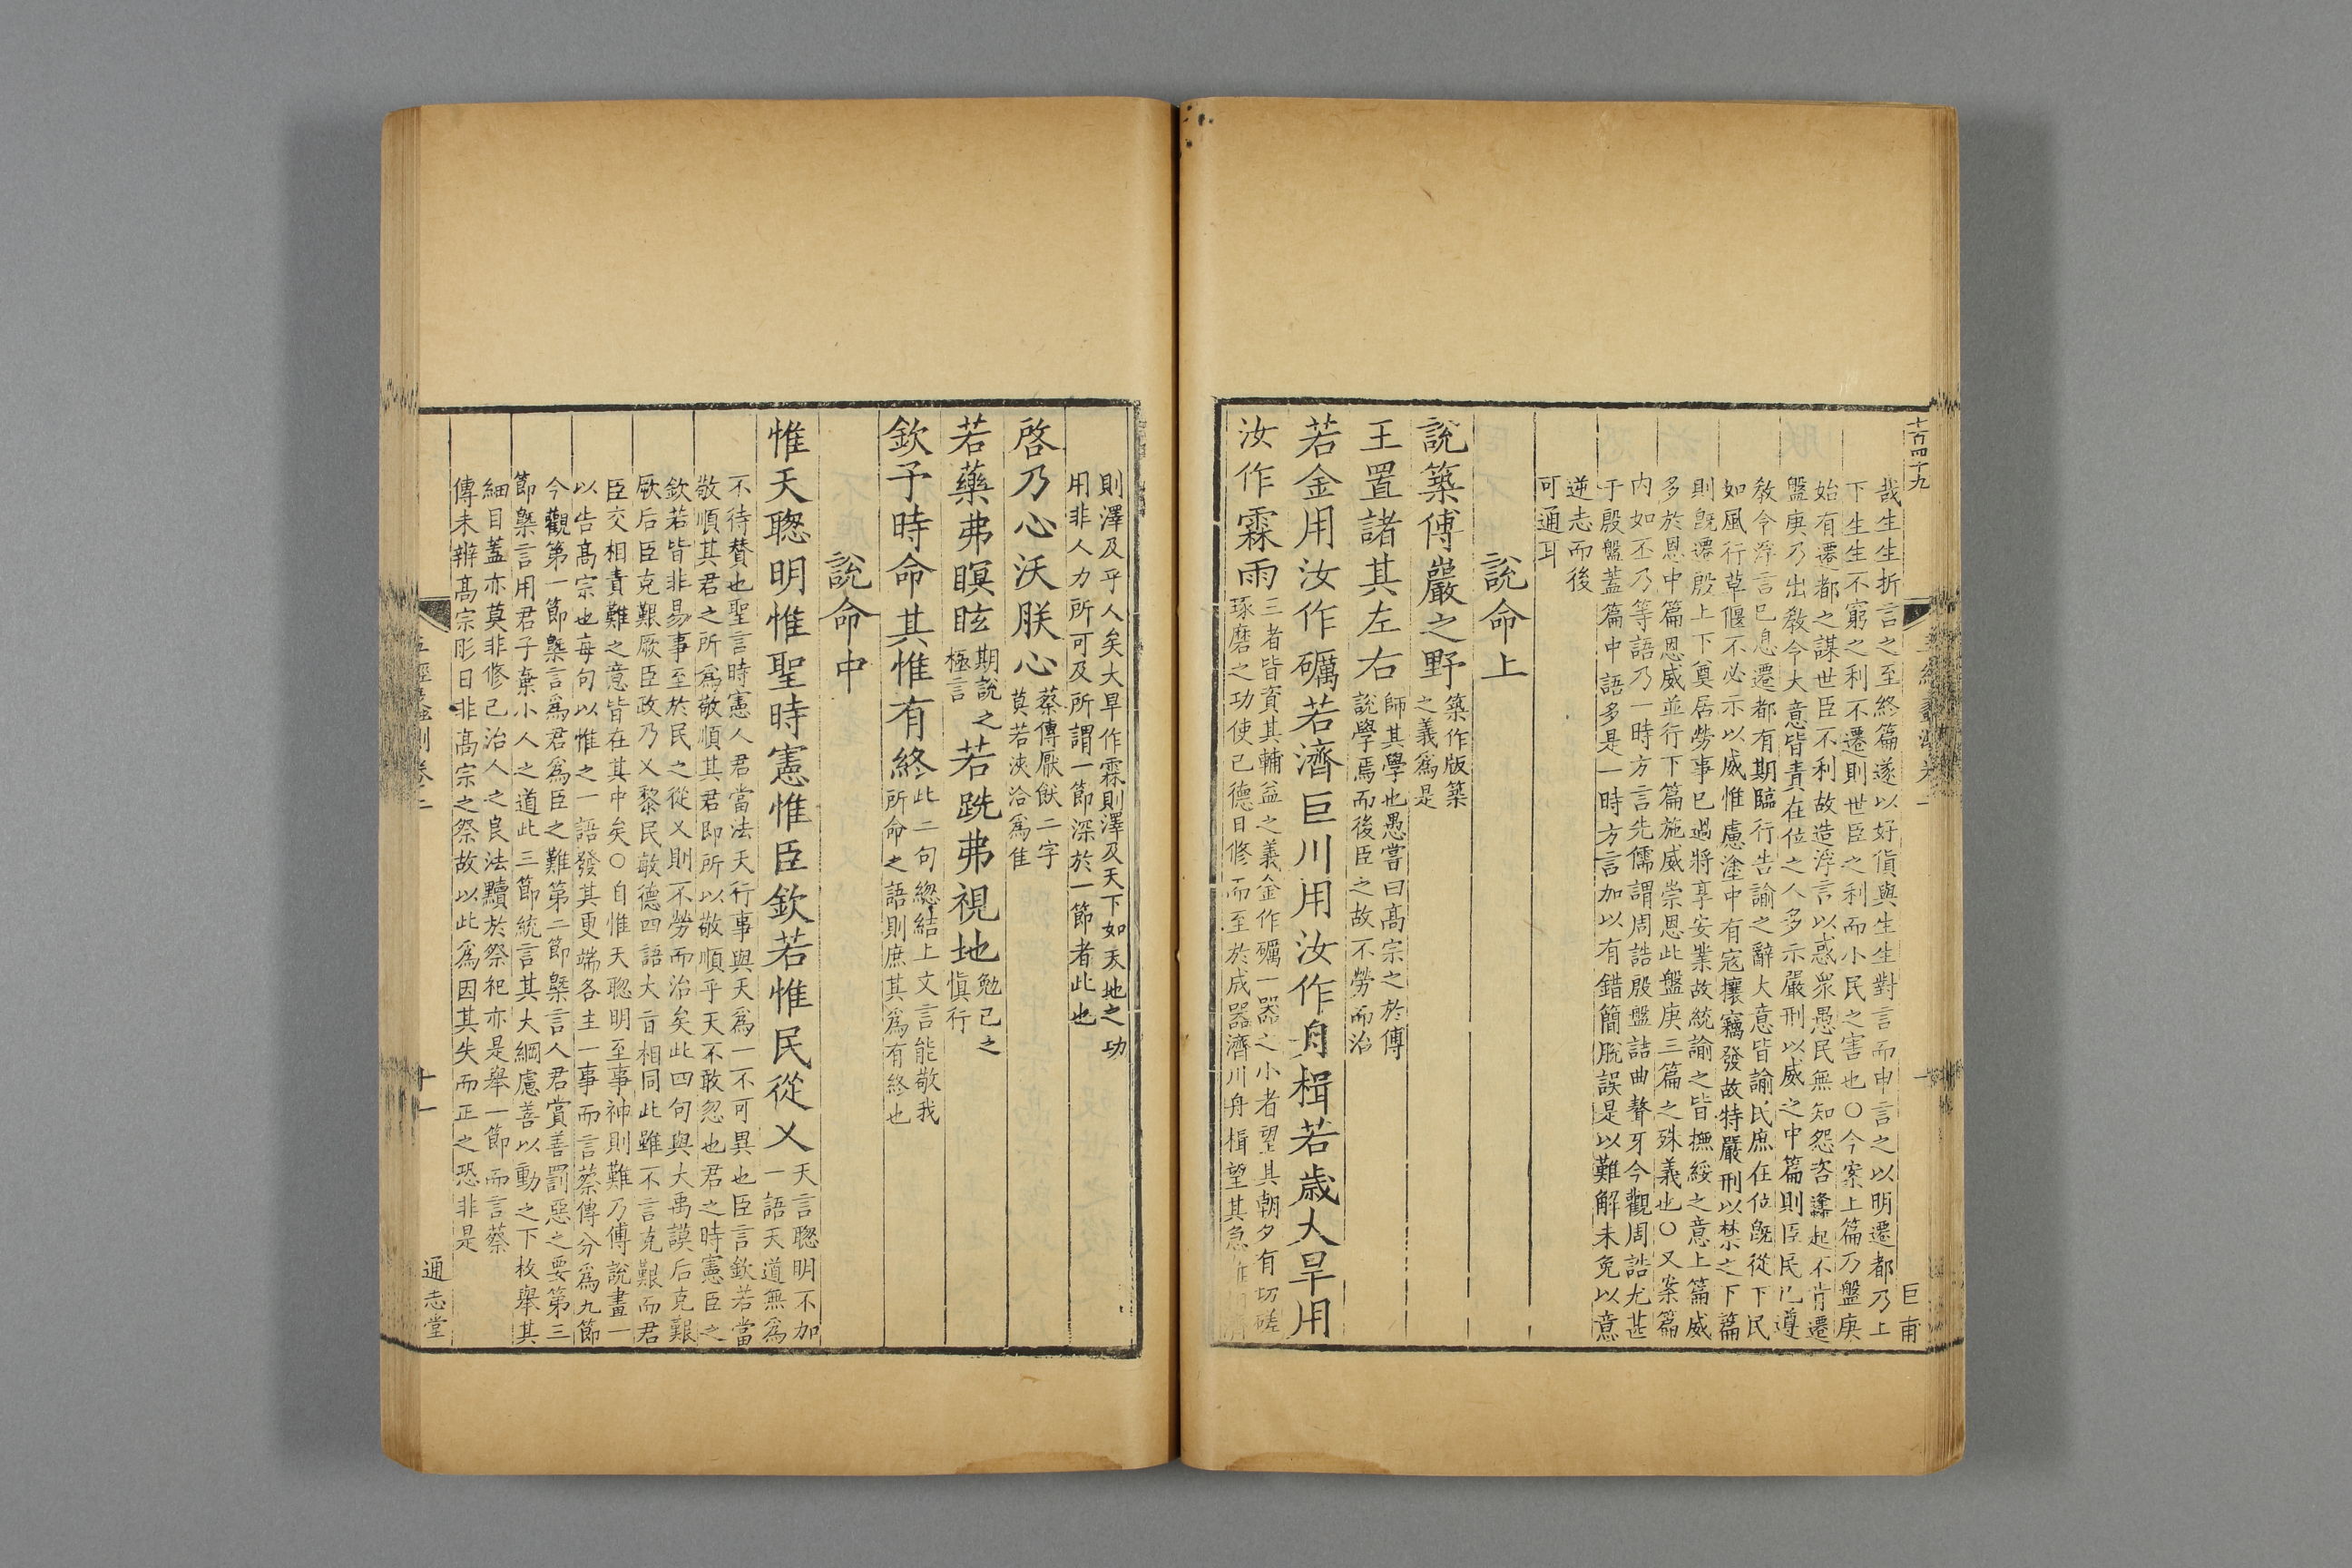 哉生生生折言之至終篇遂以好貨與生生對言而申言之以明遷都乃上
下生生不窮之利不遷則世臣之利而小民之害也○今案上篇乃盤庚
始有遷都之謀世臣不利故造浮言以惑衆愚民無知怨咨逢起不肯遷
盤庚乃出敎令大意皆責在位之人多示嚴刑以威之中篇則臣民已遵
敎令浮言已息遷都有期臨行告諭之辭大意皆諭民庶在位旣從下民
如風行草偃不必示以威惟慮塗中有寇攘竊發故特嚴刑以禁之下篇
則旣遷殷上下奠居勞事已過將享安業故統諭之皆撫綏之意上篇威
多於恩中篇恩威並行下篇施威崇恩此盤庚三篇之殊義也○又案篇
内如丕乃等語乃一時方言先儒謂周誥殷盤詰曲聱牙今觀周誥尤甚
于殷盤蓋篇中語多是一時方言加以有錯簡脫誤是以難解未免以意
逆志而後
可通耳
說命上
說築傅巖之野
築作版築
之義爲是
王置諸其左右
師其學也愚嘗曰髙宗之於傅
說學焉而後臣之故不勞而治
若金用汝作礪若濟巨川用汝作舟楫若歳大旱用
汝作霖雨
三者皆資其輔益之義金作礪一器之小者望其朝夕有切磋
琢磨之功使已德日修而至於成器濟川舟楫望其急
十百四十九
巨甫
則澤及乎人矣大旱作霖則澤及天下如天地之功
用非人力所可及所謂一節深於一節者此也
啓乃心沃朕心
蔡傳厭飫二字
莫若浹洽爲佳
若藥弗瞑眩
期說之
極言
若跣弗視地
勉已之
愼行
欽予時命其惟有終
此二句緫結上文言能敬我
所命之語則庶其爲有終也
說命中
惟天聦明惟聖時憲惟臣欽若惟民從乂
天言聦明不加
一語天道無爲
不待賛也聖言時憲人君當法天行事與天爲一不可異也臣言欽若當
敬順其君之所爲敬順其君即所以敬順乎天不敢忽也君之時憲臣之
欽若皆非易事至於民之從乂則不勞而治矣此四句與大禹謨后克艱
厥后臣克艱厥臣政乃乂黎民敏德四語大旨相同此雖不言克艱而君
臣交相責難之意皆在其中矣○自惟天聦明至事神則難乃傅說畫一
以告髙宗也每句以惟之一語發其更端各主一事而言蔡傳分爲九節
今觀第一節槩言爲君爲臣之難第二節槩言人君賞善罰惡之要第三
節槩言用君子棄小人之道此三節統言其大綱慮善以動之下枚舉其
細目蓋亦莫非修己治人之良法黷於祭祀亦是舉一節而言蔡
傳未辨髙宗肜日非髙宗之祭故以此爲因其失而正之恐非是
十一
通志堂